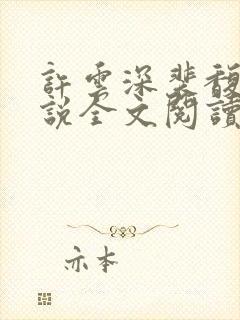 許雲深裴馥
說全文閱讀
亦本